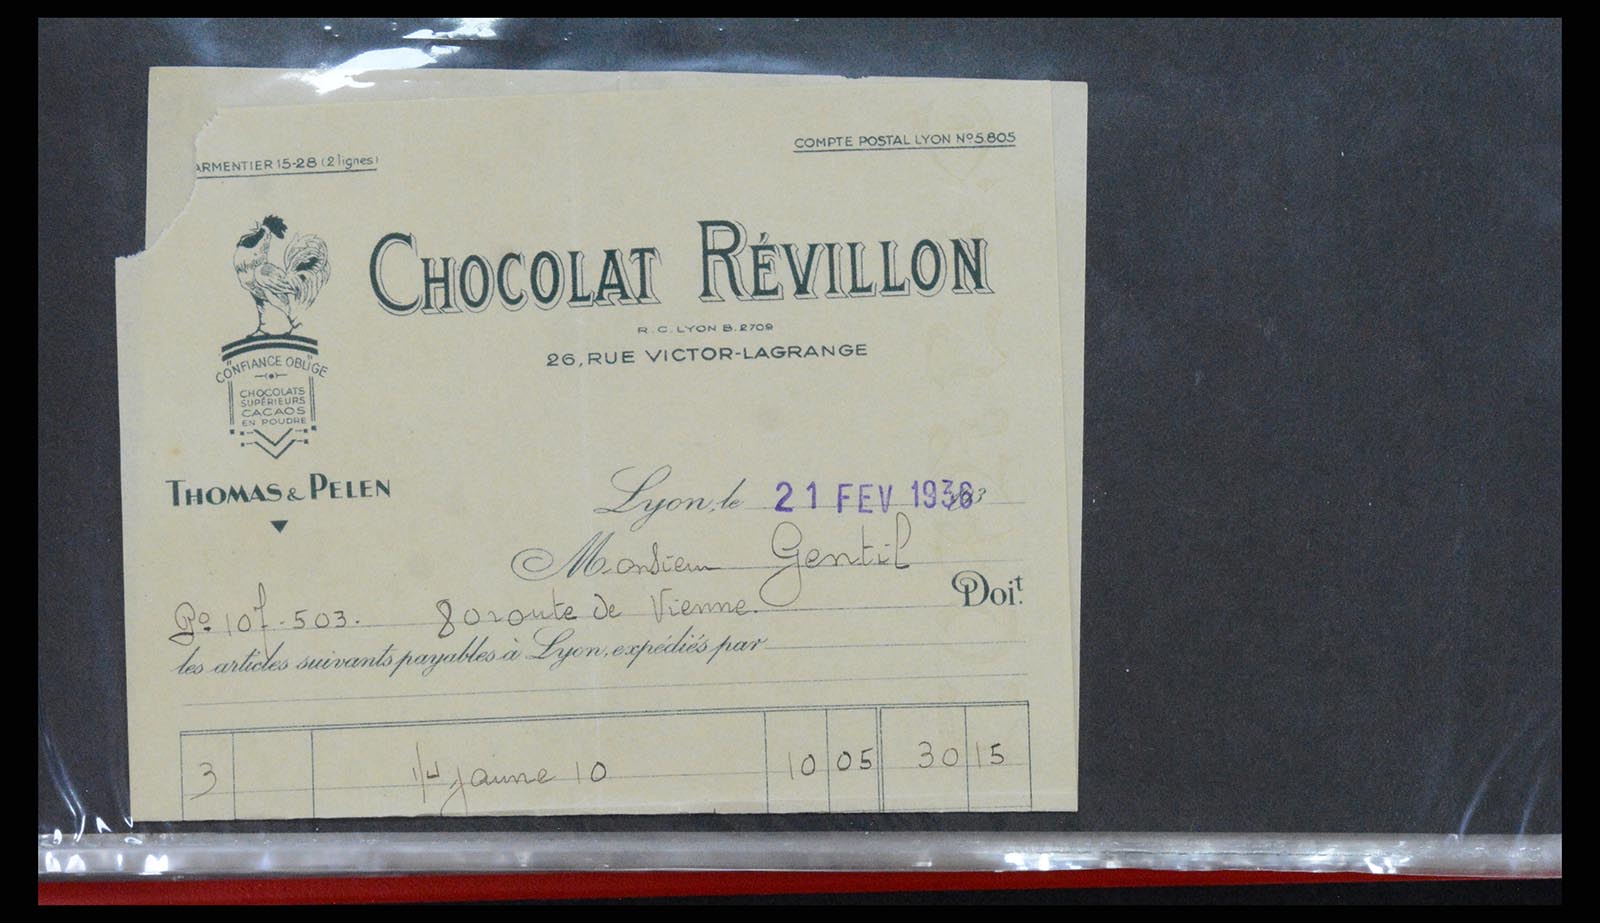 ARMENTIER 15-28 (2 lignes)
COMPTE POSTAL LYON Nº 5.805
CHOCOLAT RÉVILLON
R.C. LYON B. 2709
26, RUE VICTOR-LAGRANGE
"CONFIANCE OBLIGE"
CHOCOLATS
SUPÉRIEURS
CACAOS
EN POUDRE
THOMAS & PELEN
Lyon, le 21 FEV 1936
Monsieur Gentil
Doit.
107-503. 80 route de Vienne.
les articles suivants payables à Lyon, expédiés par
3 1/4 jaune 10 10 05 30 15